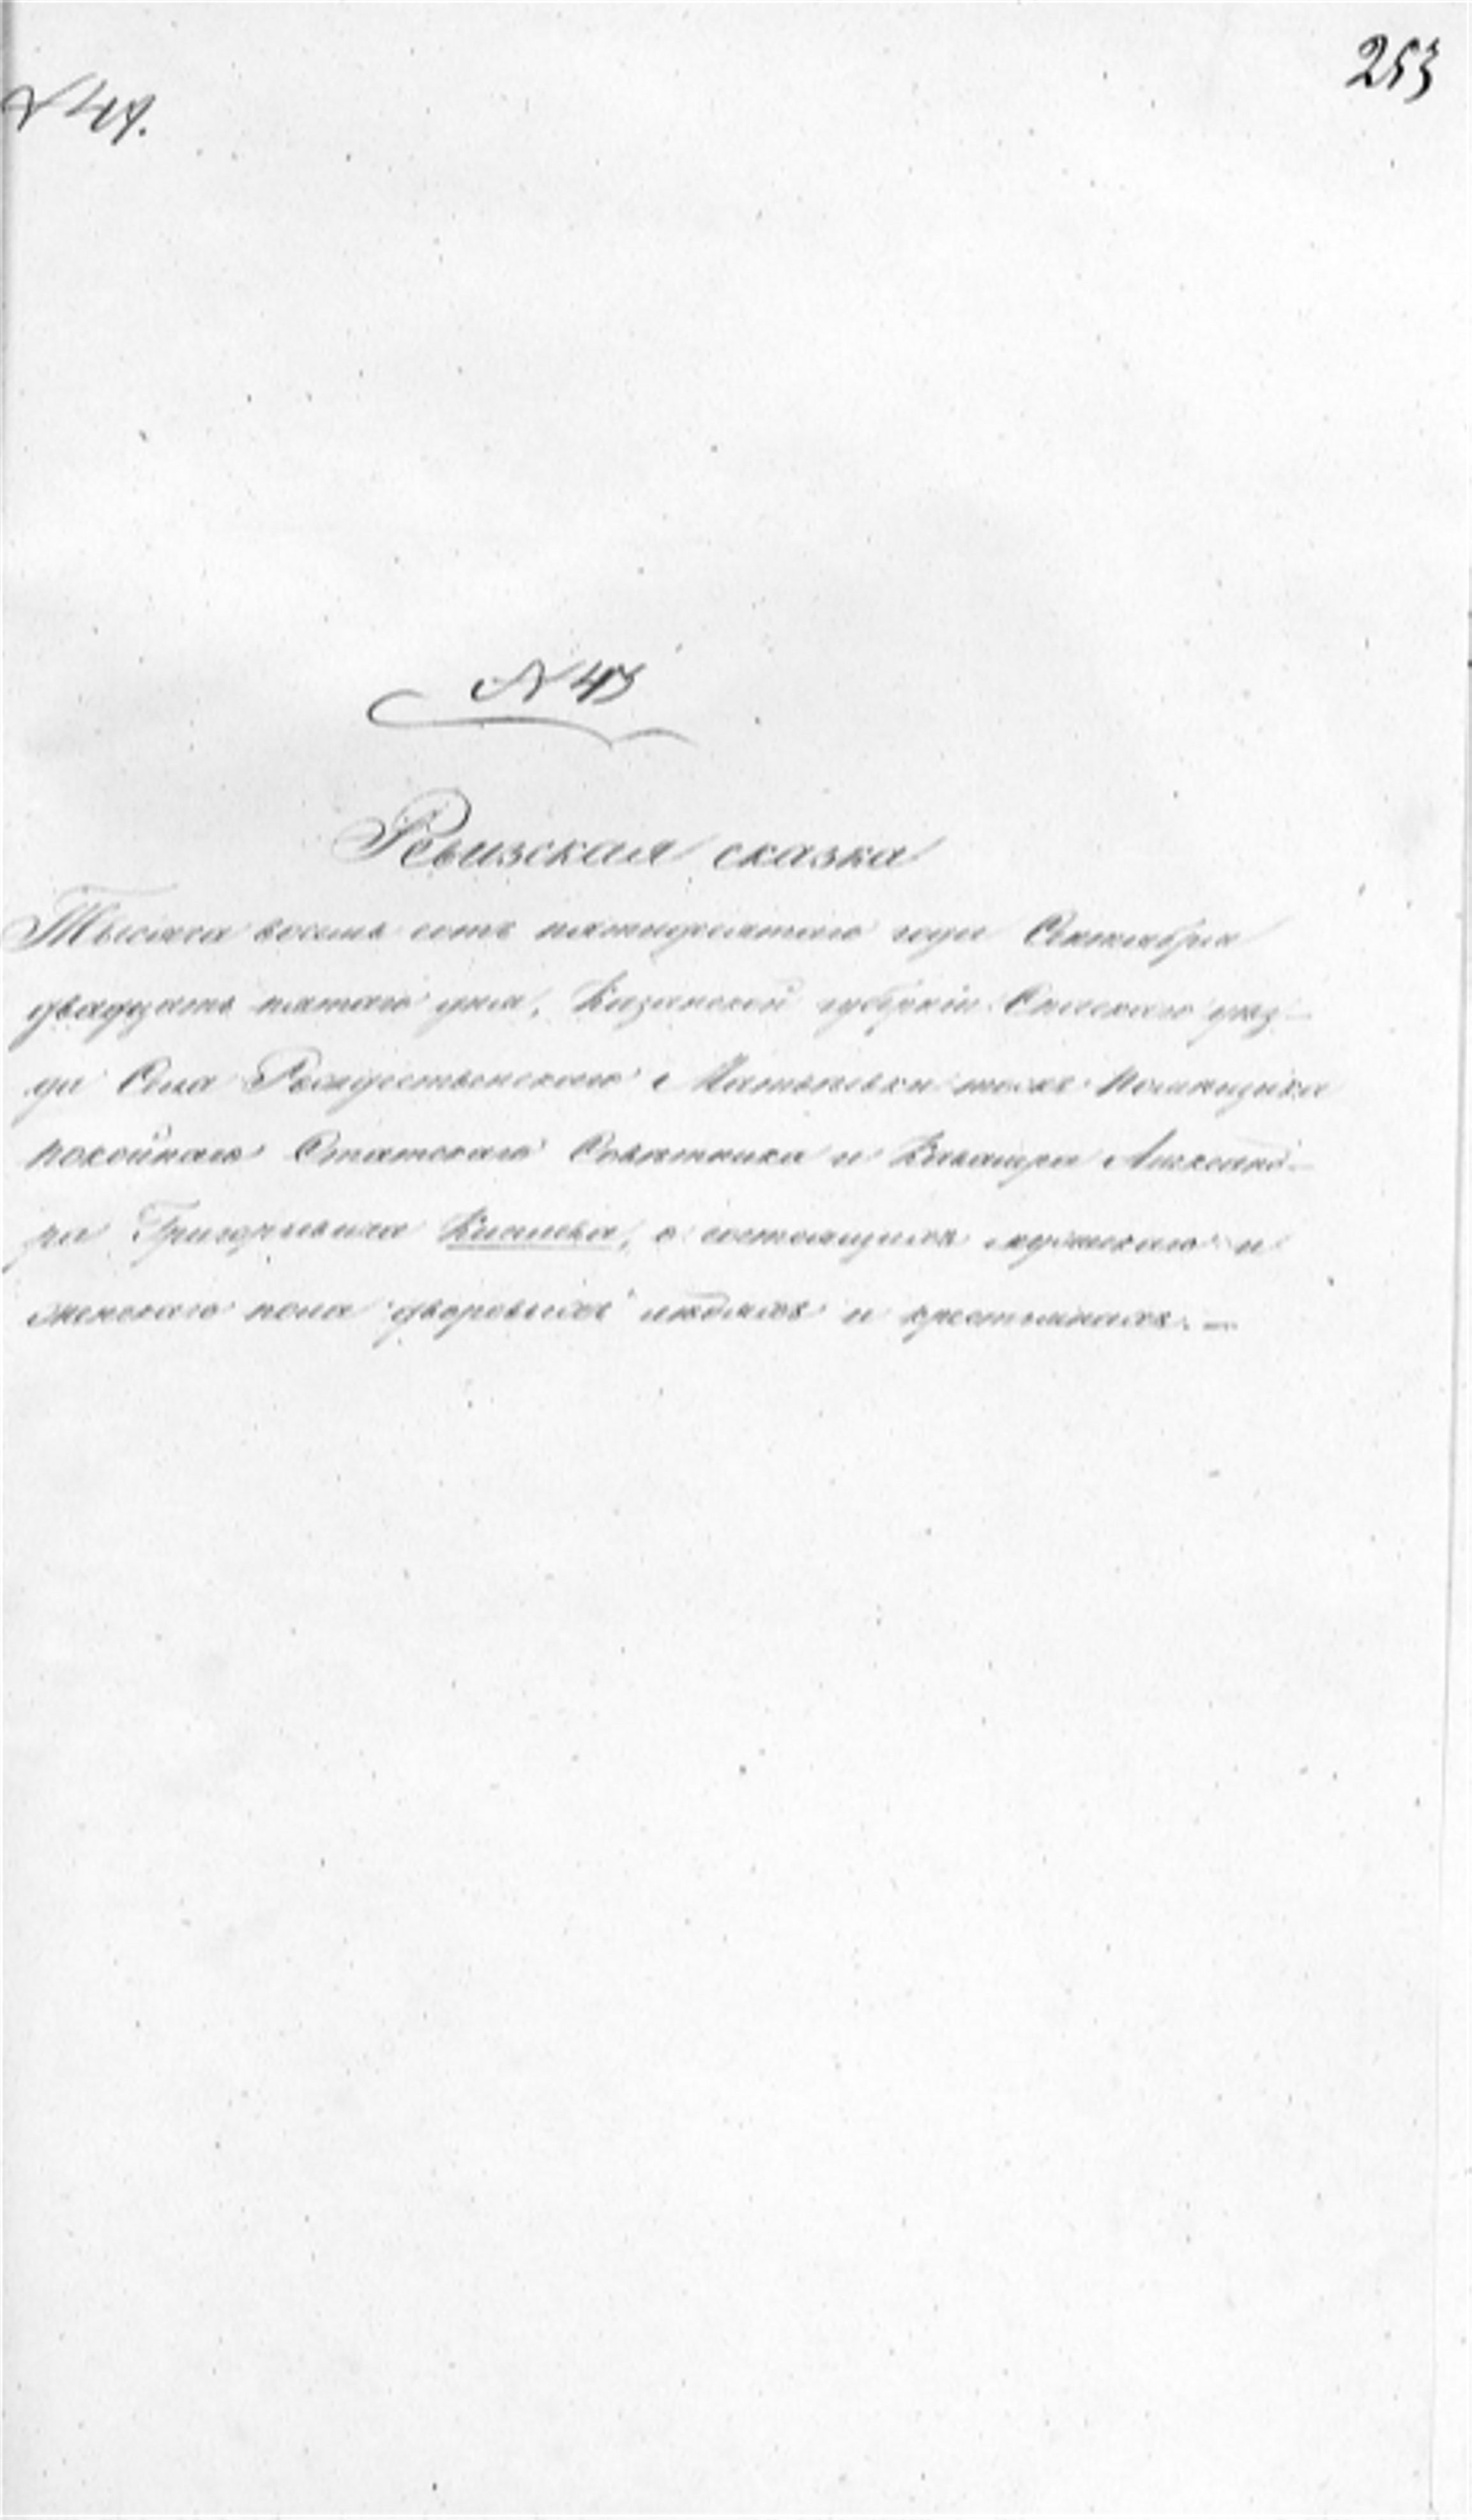 253
№ 49.
№ 43
Ревизская сказка
Тысяча восемь сотъ пятидесятаго года Сентября
двадцать пятаго дня, Казанской губерніи Спаскаго уѣз-
да Села Рождественскаго Матвѣевки тожъ помѣщика
покойнаго Статскаго Совѣтника и Кавалера Александ-
ра Григорьевича Киселева, о состоящихъ мужескаго и
женскаго пола дворовыхъ людяхъ и крестьянахъ. —